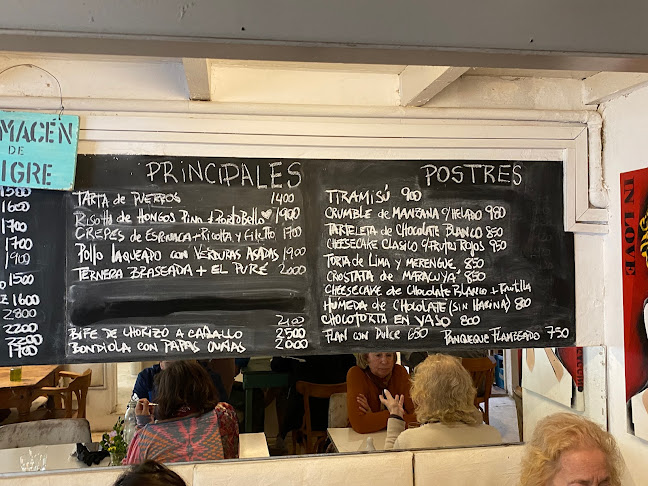 MACÉN
DE
IGRE
1500
1600
1700
1700
1900
1500
1600
2800
2200
2200
1700
PRINCIPALES
TARTA de PUERROS 1400
RISOTTO de HONGOS PINO + PORTOBELLO 1900
CREPES de ESPINACA + RICOTA y FILETTO 1700
POLLO LAQUEADO CON VERDURAS ASADAS 1900
TERNERA BRASEADA + EL PURÉ 2000
2400
BIFE DE CHORIZO A CABALLO 2500
BONDIOLA CON PAPAS 2000
POSTRES
TIRAMISÚ 900
CRUMBLE de MANZANA C/HELADO 980
TARTELETA de CHOCOLATE BLANCO 850
CHEESECAKE CLASICO C/FRUTOS ROJOS 950
TORTA de LIMA Y MERENGUE 850
CROSTATA de MARACUYÁ 850
CHEESECAKE de CHOCOLATE BLANCO + FRUTILLA
HÚMEDA de CHOCOLATE (SIN HARINA) 800
CHOCOTORTA EN VASO 800
FLAN CON DULCE 650 PANQUEQUE FLAMBEADO 750
IN LOVE